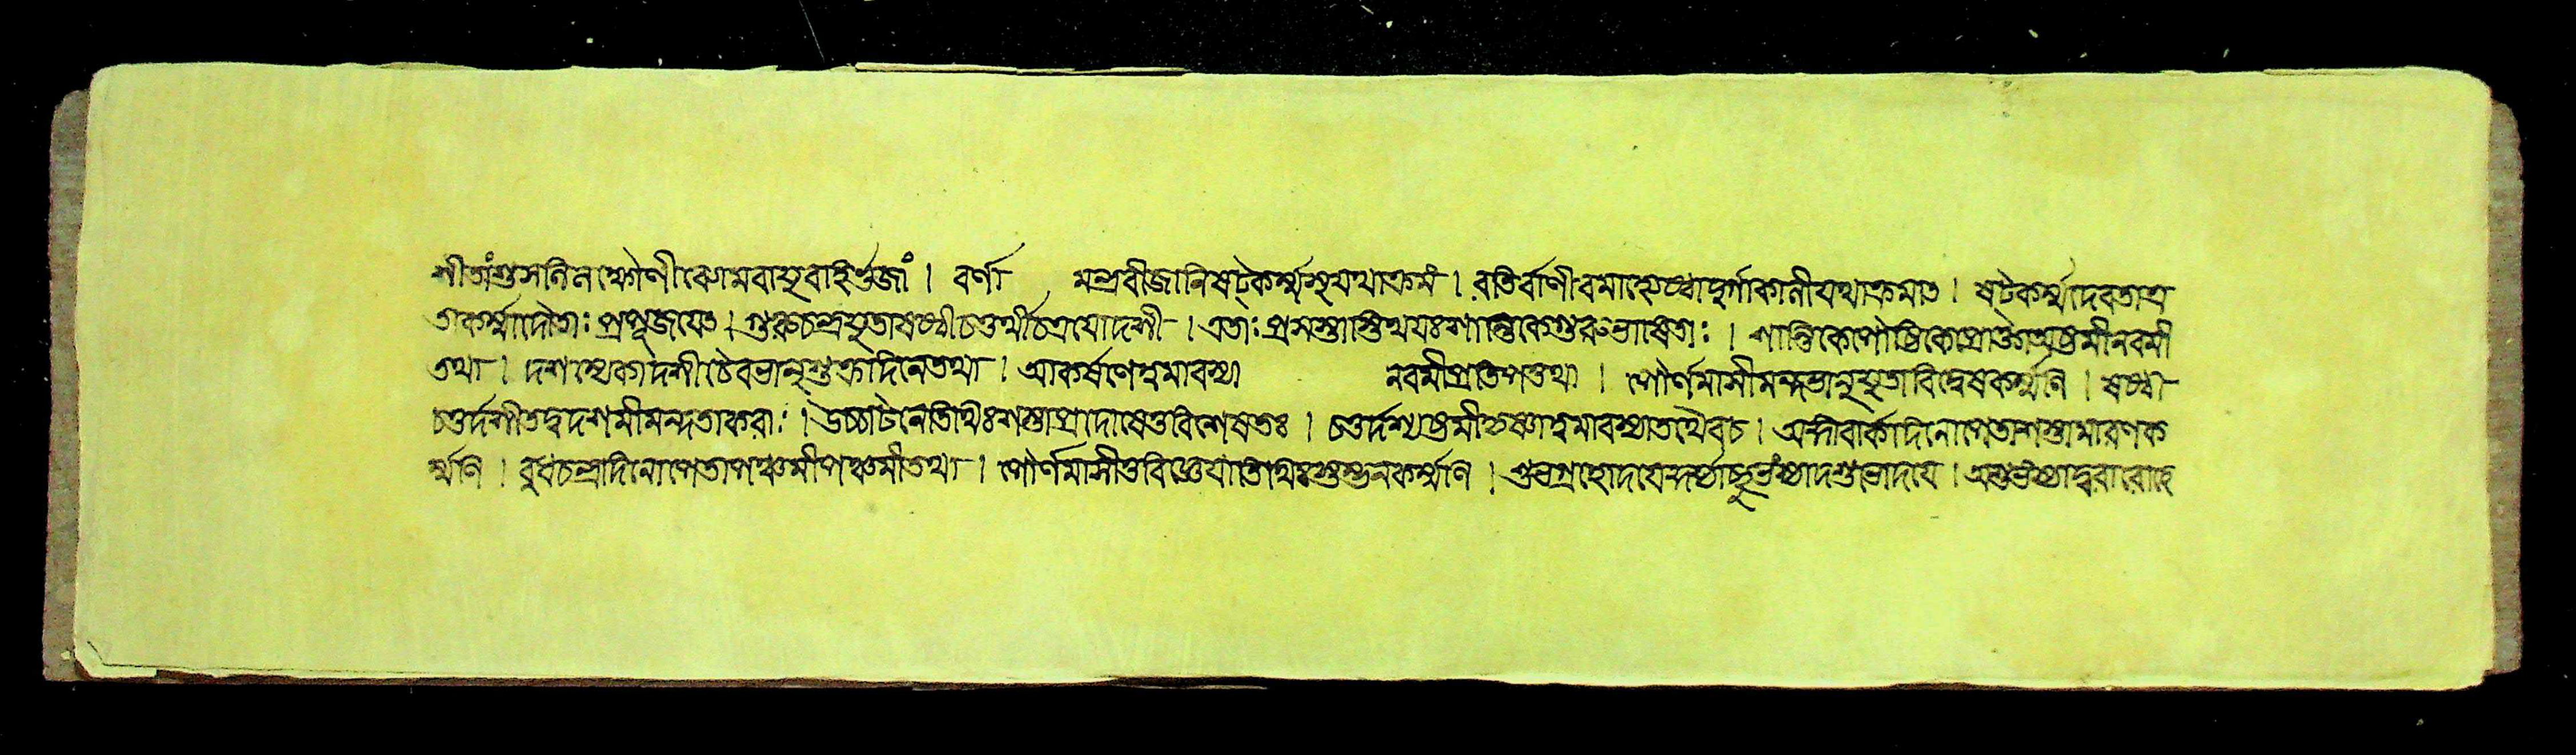 শীতাংশুসলিলক্ষোণীব্যোমবায়ুবাহির্ভুজাং । বর্ণা মন্ত্রবীজানিষট্কর্ম্মসুযথাক্রমং । রতির্বাণীরমাজ্যেষ্ঠাদুর্গাকালীযথাক্রমাত্ । ষট্কর্ম্মদেবতাপ্র
তাকর্ম্মাদৌতাঃ প্রপূজয়েৎ । গুরুচন্দ্রযুতাষষ্ঠীচতুর্থীচত্রয়োদশী । এতাঃ প্রশস্তাস্তিথয়ঃশান্তিকেগুরুভাষিতাঃ । শান্তিকেপৌষ্টিকেপ্রাজ্ঞেঅষ্টমীনবমী
তথা । দশম্যেকাদশীচৈবভানুশুক্রদিনেতথা । আকর্ষণেত্বমাবস্থা নবমীপ্রতিপত্তথা । পৌর্ণমাসীমন্দভানুযুতাবিদ্বেষকর্ম্মণি । ষষ্ঠী
চতুর্দশীতদ্বদশমীমন্দতাকরাঃ । উচ্চাটনেতিথিঃশস্তাপ্রদোষেতুবিশেষতঃ । চতুর্দশ্যষ্টমীকৃষ্ণাত্বমাবস্থাতথৈবচ । মন্দবার্কদিনোপেতাশস্তামারণক
র্ম্মণি । বুধচন্দ্রদিনোপেতাপঞ্চমীপঞ্চমীতথা । পৌর্ণমাসীতুবিজ্ঞেয়াতিথিঃস্তম্ভনকর্ম্মণি । শুভগ্রহোদয়েকুর্য্যাচ্ছুভংস্যাদশুভোদয়ে । অশুভংস্যাদ্বরারোহে